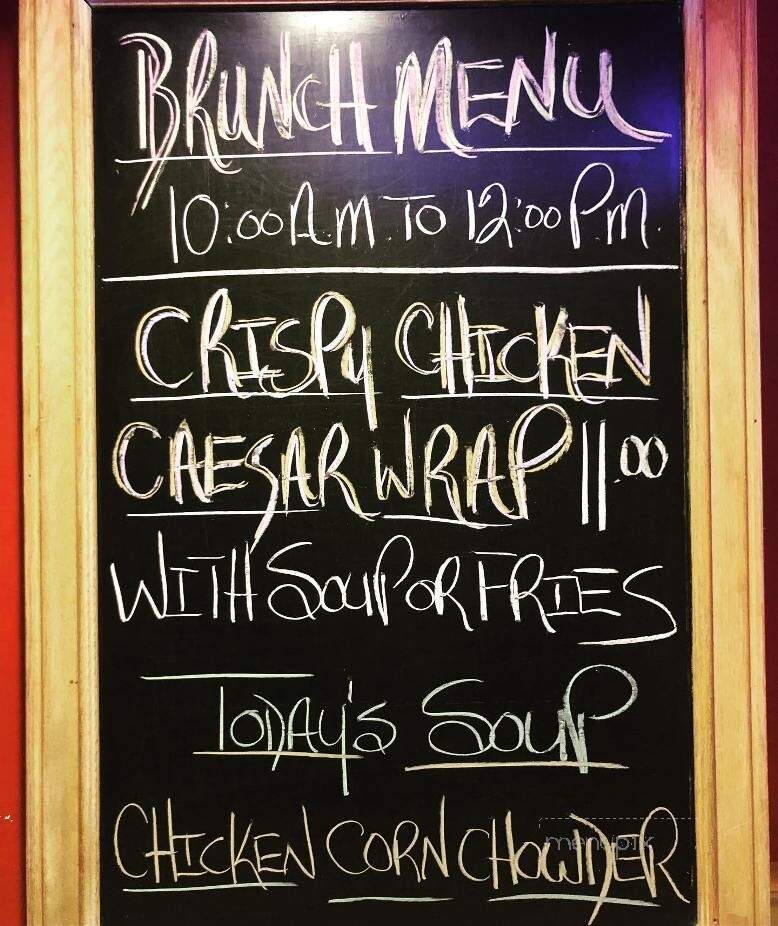 BRUNCH MENU
10:00AM TO 12:00PM.
CRISPY CHICKEN
CAESAR WRAP 11.00
WITH SOUP OR FRIES
TODAY'S SOUP
CHICKEN CORN CHOWDER
menupix